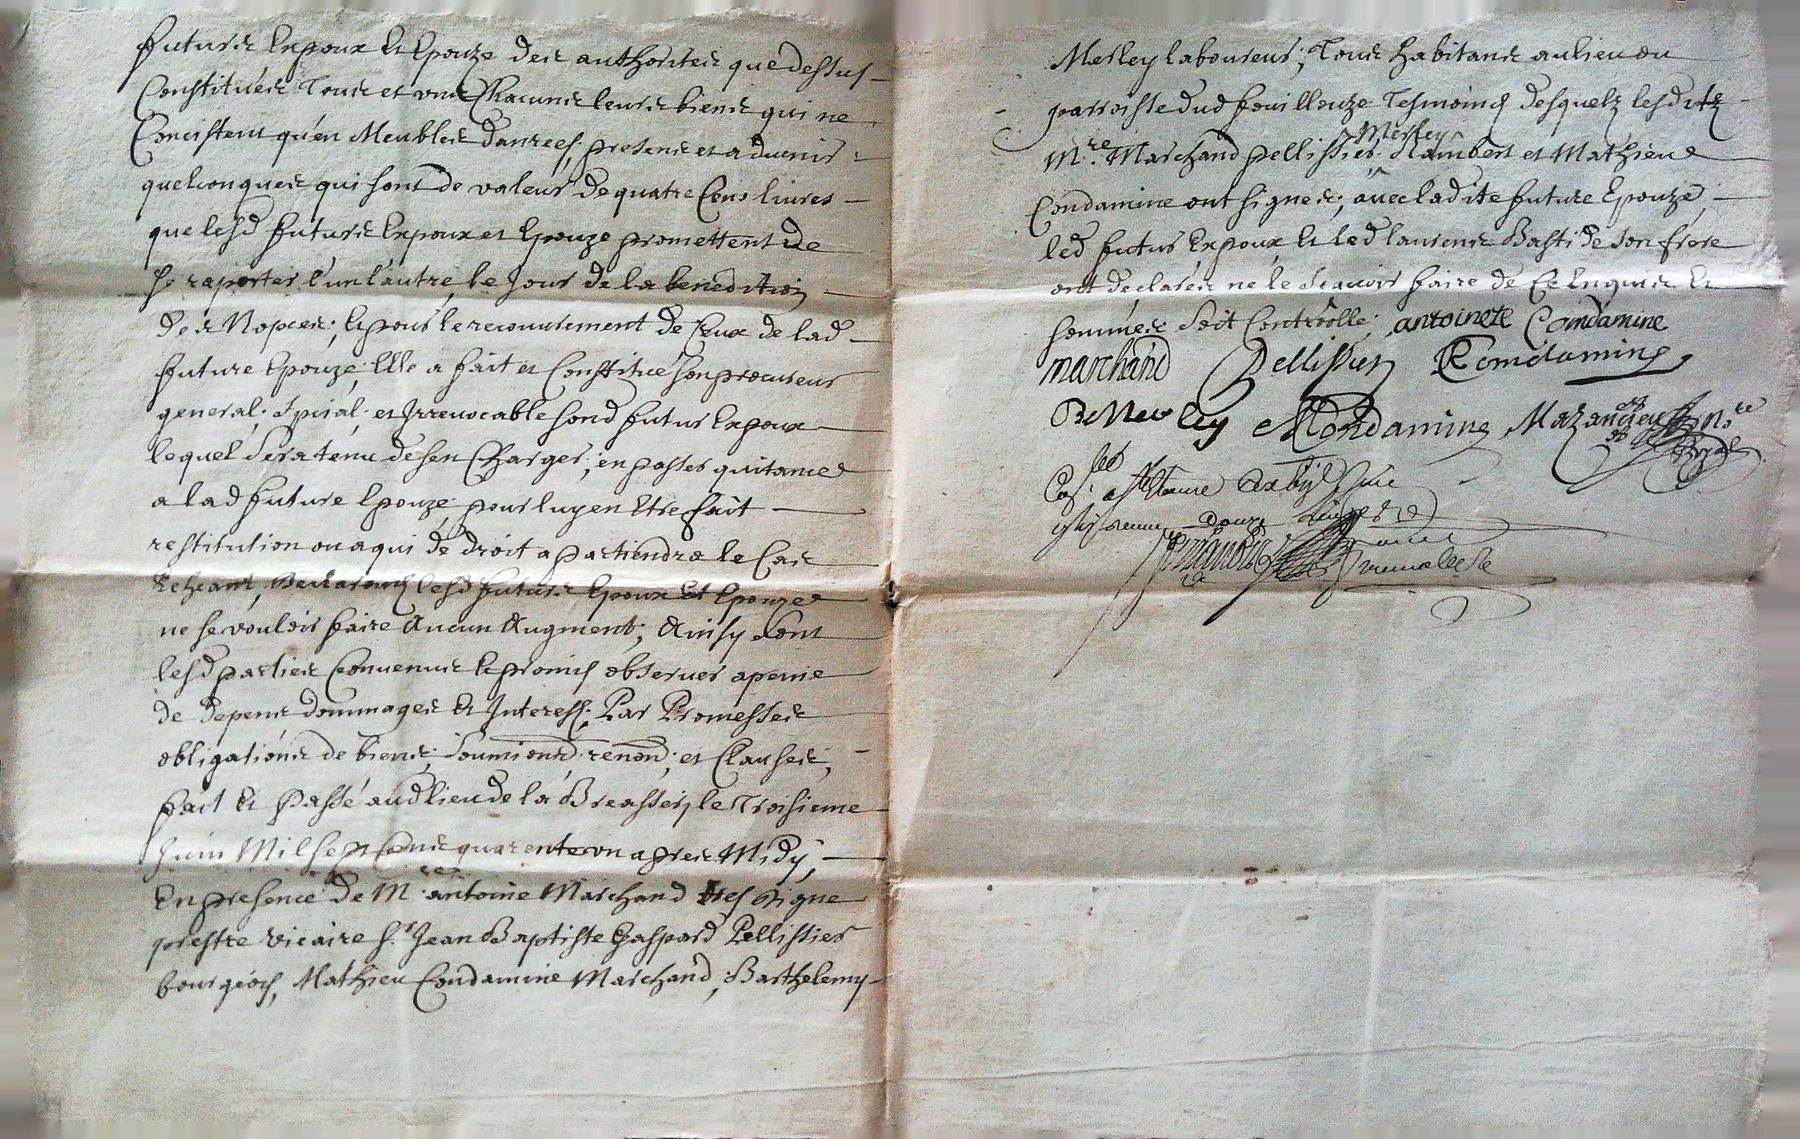 futurs Expoux Et Epouze des authorites que dessus
Constitués Tous et uns Chacuns leurs biens qui ne
Concistent qu'en Meubles danrées, presens et aduenir
quelconques qui sont de valeur de quatre Cens liures
que lesd futurs Expoux et Epouze promettent de
se raporter l'un l'autre, le Jour de la benediction
des Nopces; Et pour le recouurement de Ceux de lad
future Epouze Elle a fait et Constitué son procureur
general, Special, et Irreuocable sond futur Expoux
lequel Sera tenu de s'en Charger, en passer quitance
a lad future Epouze pour luy en Etre fait
restitution ou a qui de droit apartiendra le Cas
Echeant, Declarant lesd futurs Epoux Et Epouze
ne se vouloir faire Aucun Augment; Ainsy sont
lesd parties Conuenus Et promis obseruer a peine
de depens dommages Et Interest; Par Promesses
obligations de biens; Soumiond, renond, et Clauses,
fait Et Passé aud lieu de la Breassery le Troisieme
Juin Mil sept Cens quarente un apres Midy,
En presence de Mre antoine Marchand tres digne
prestre vicaire Sr Jean Baptiste Gaspard Pellissier
bourgeois, Mathieu Condamine Marchand, Barthelemy
Merley laboureur; Tous habitans au lieu ou
parroisse dud fouillouze Tesmoins desquelz lesditz
Mre Marchand pellissier Merley Rambert et Mathieu
Condamine ont signes, auec ladite future Epouze,
led futur Expoux Et led laurens Basti de son frere
ont declarés ne le Scauoir faire de Ce Enquis Et
sommés Soit Controollé antoinete Condamine
marchand Pellissier Condamine
B Merley Condamine Mazancieux Nre
Royal